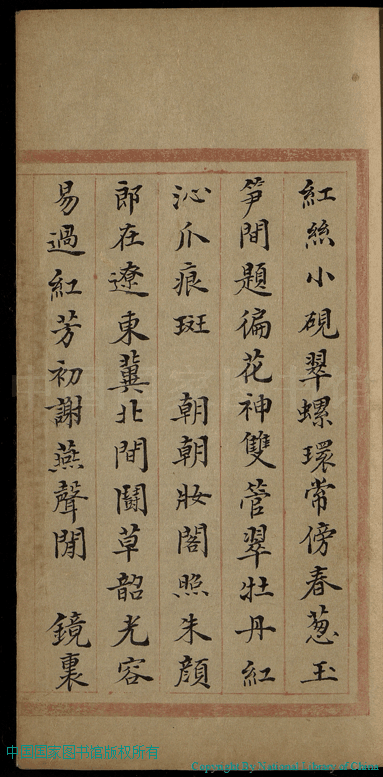 紅絲小硯翠螺環常傍春蔥玉
笋間題徧花神雙管翠牡丹紅
沁爪痕斑　朝朝妝閣照朱顔
郎在遼東冀北間鬪草韶光容
易過紅芳初謝燕聲閒　鏡裏
中国国家图书馆版权所有
Copyright By National Library of China